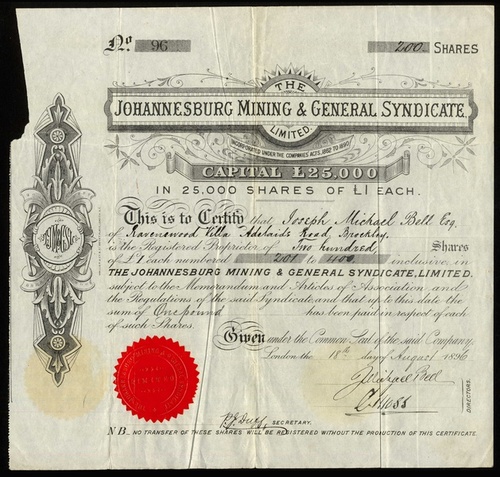 No. 96
200 SHARES
THE
JOHANNESBURG MINING & GENERAL SYNDICATE,
LIMITED.
INCORPORATED UNDER THE COMPANIES ACTS, 1862 TO 1890
CAPITAL £25,000
IN 25,000 SHARES OF £1 EACH.
This is to Certify that Joseph Michael Bell Esq.
of Ravenswood Villa Adelaide Road, Brockley,
is the Registered Proprietor of Two hundred Shares
of £1 each numbered 201 to 400 inclusive, in
THE JOHANNESBURG MINING & GENERAL SYNDICATE, LIMITED.
subject to the Memorandum and Articles of Association and
the Regulations of the said Syndicate and that up to this date the
sum of One pound has been paid in respect of each
of such Shares.
Given under the Common Seal of the said Company,
London the 18th day of August 1896
J Michael Bell
DIRECTORS.
SECRETARY.
N.B. NO TRANSFER OF THESE SHARES WILL BE REGISTERED WITHOUT THE PRODUCTION OF THIS CERTIFICATE.